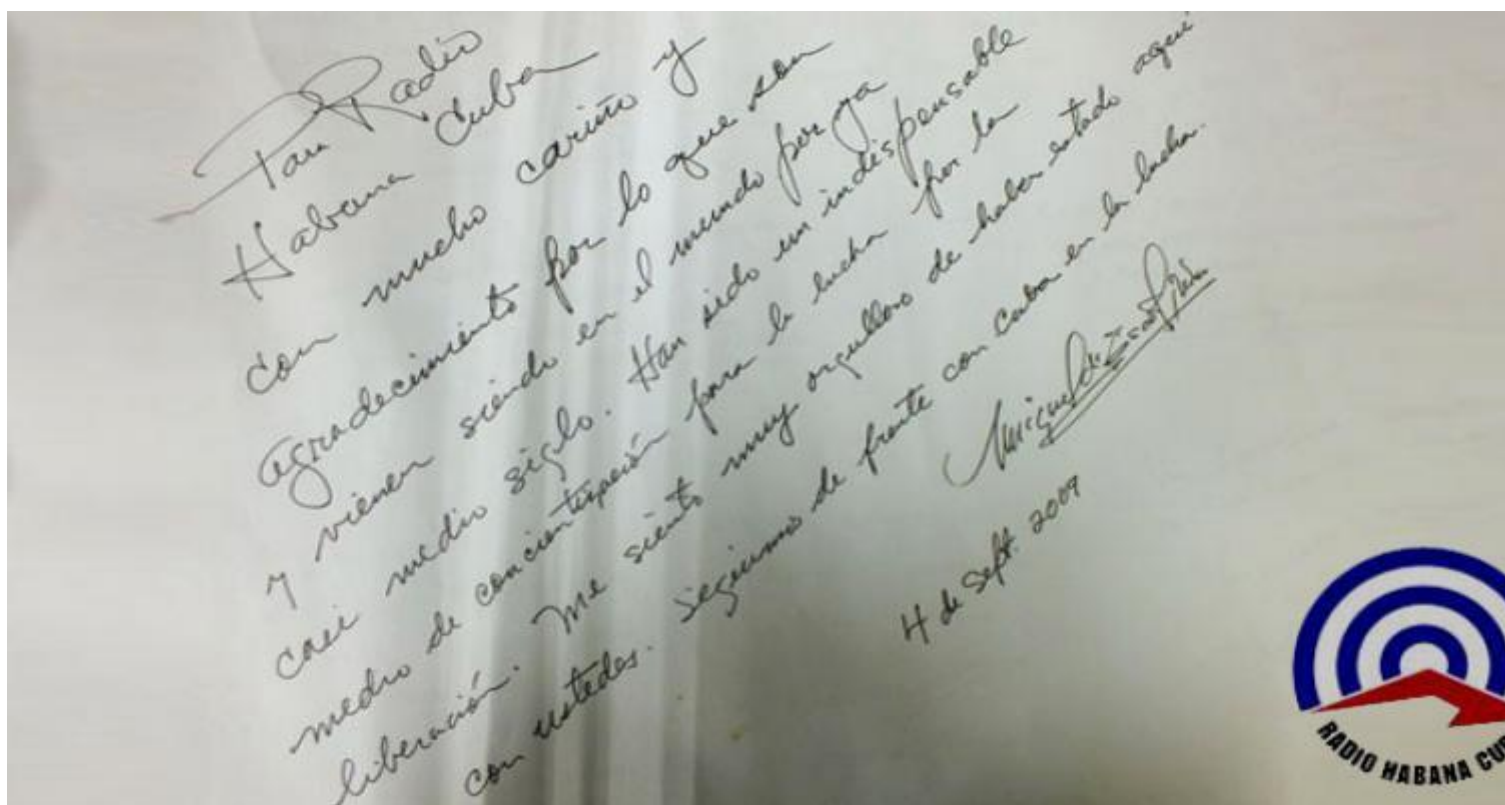 Para Radio
Habana Cuba
con mucho cariño y
agradecimiento por lo que son
y vienen siendo en el mundo por ya
casi medio siglo. Han sido un indispensable
medio de concientización para la lucha por la
liberación. Me siento muy orgulloso de haber estado aquí
con ustedes. Seguimos de frente con Cuba en la lucha.
Miguel d'Escoto
4 de Sept. 2009
RADIO HABANA CU